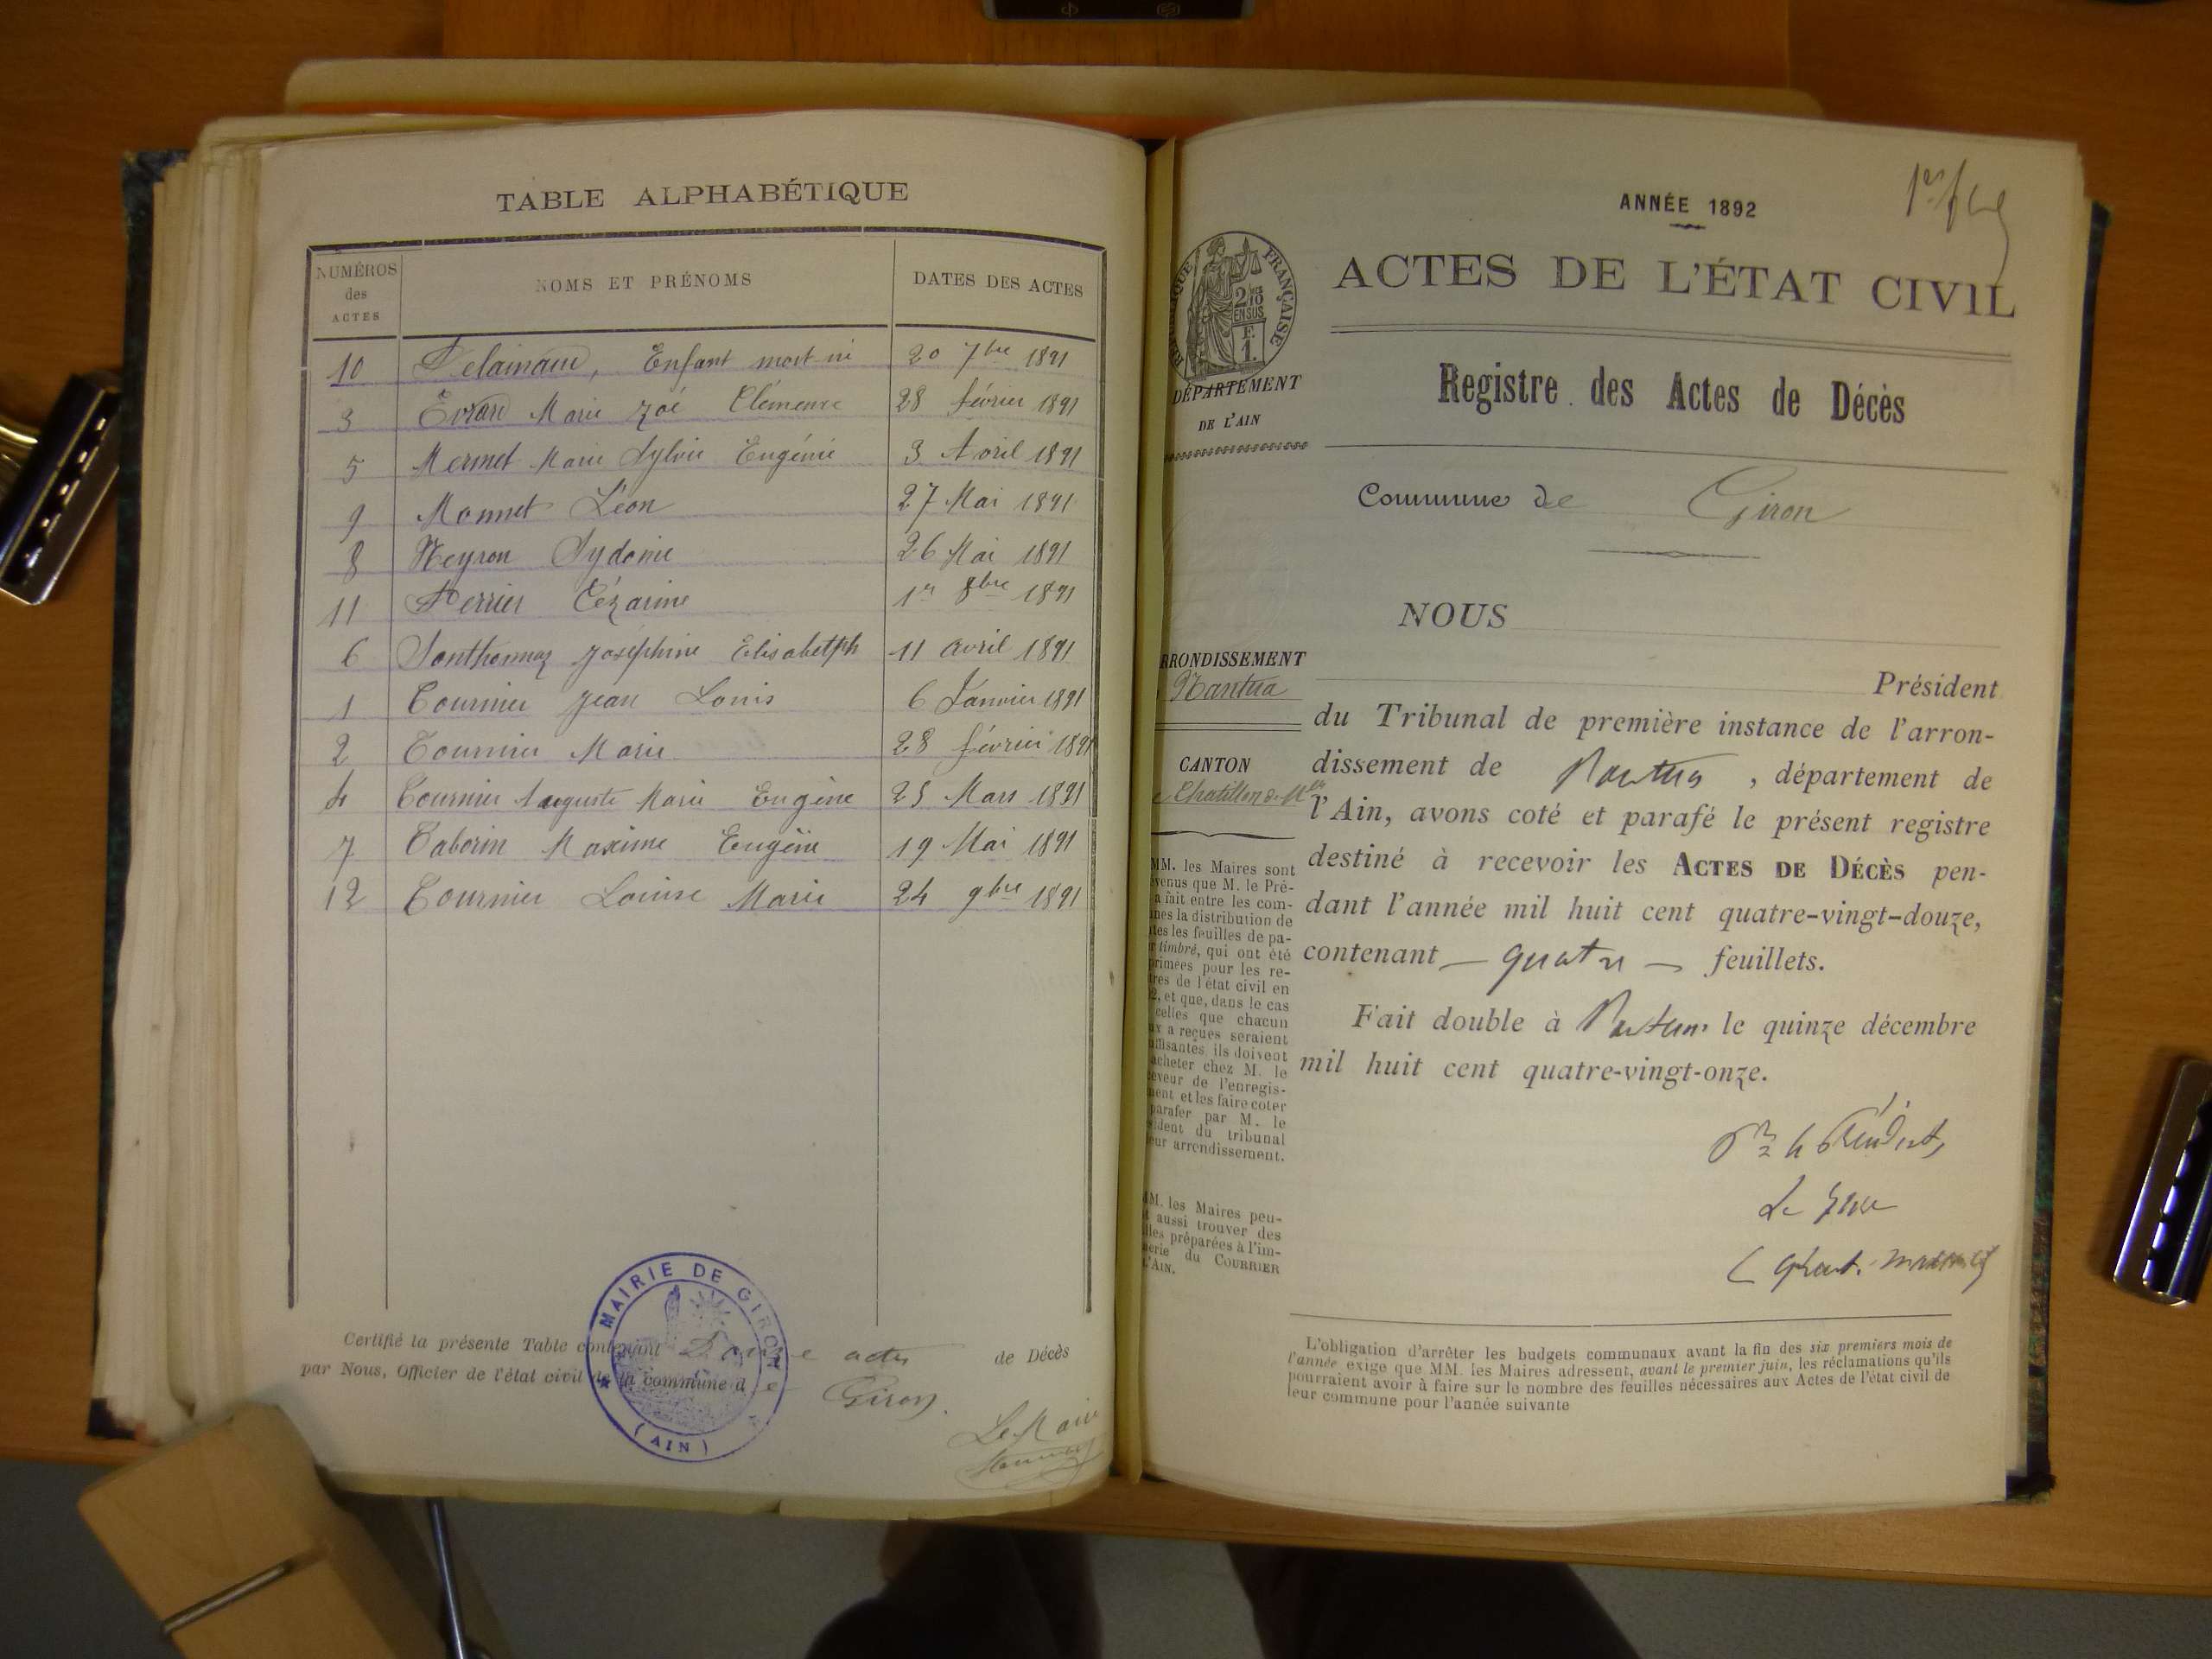 TABLE ALPHABÉTIQUE
NUMÉROS des ACTES NOMS ET PRÉNOMS DATES DES ACTES
10 Enfant mort-né 20 7bre 1891
3 Marie Zoé Clémence 28 février 1891
5 Mermet Marie Sylvie Eugénie 3 Avril 1891
9 Monnet Léon 27 Mai 1891
8 Neyron Sydonie 26 Mai 1891
11 Perrier Cézarine 1er 8bre 1891
6 Santhonnaz Joséphine Elisabetph 11 avril 1891
1 Tournier Jean Louis 6 Janvier 1891
2 Tournier Marie 28 février 1891
4 Tournier Auguste Marie Eugène 25 Mars 1891
7 Taborin Maxime Eugène 19 Mai 1891
12 Tournier Louise Marie 24 9bre 1891
Certifié la présente Table contenant Douze actes de Décès
par Nous, Officier de l'état civil de la commune de Giron.
Le Maire
MAIRIE DE GIRON
(AIN)
1er f
ANNÉE 1892
ACTES DE L'ÉTAT CIVIL
RÉPUBLIQUE FRANÇAISE
2 10es
EN SUS
F.
1.
DÉPARTEMENT
DE L'AIN
Registre des Actes de Décès
Commune de Giron
NOUS
RRONDISSEMENT
Nantua
CANTON
e Chatillon de Mlle
Président
du Tribunal de première instance de l'arron-
dissement de Nantua, département de
l'Ain, avons coté et parafé le présent registre
destiné à recevoir les ACTES DE DÉCÈS pen-
dant l'année mil huit cent quatre-vingt-douze,
contenant — quatre — feuillets.
Fait double à Nantua, le quinze décembre
mil huit cent quatre-vingt-onze.
Pr le Président,
Le Juge
MM. les Maires sont
venus que M. le Pré-
a fait entre les com-
nes la distribution de
tes les feuilles de pa-
r timbré, qui ont été
primées pour les re-
tres de l'état civil en
2, et que, dans le cas
celles que chacun
ux a reçues seraient
uffisantes, ils doivent
acheter chez M. le
ceveur de l'enregis-
ment et les faire coter
parafer par M. le
sident du tribunal
eur arrondissement.
MM. les Maires peu-
t aussi trouver des
lles préparées à l'im-
merie du COURRIER
L'AIN.
L'obligation d'arrêter les budgets communaux avant la fin des six premiers mois de
l'année exige que MM. les Maires adressent, avant le premier juin, les réclamations qu'ils
pourraient avoir à faire sur le nombre des feuilles nécessaires aux Actes de l'état civil de
leur commune pour l'année suivante